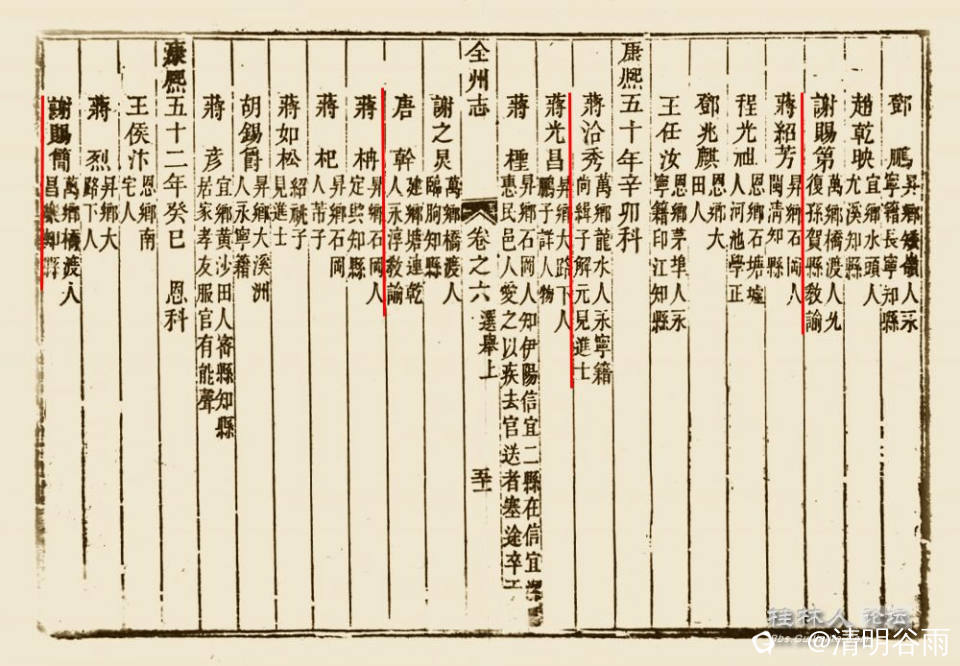 鄧 鴈 昇鄉矮嶺人永寧籍長寧知縣
趙乾映 宜鄉水頭人尤溪知縣
謝賜第 萬鄉橋渡人允復孫賀縣教諭
蔣紹芳 昇鄉石岡人閩清知縣
程光祖 恩鄉石塘墟人河池學正
鄧兆麒 恩鄉大田人
王任汝 恩鄉茅埠人永寧籍印江知縣
康熙五十年辛卯科
蔣洽秀 萬鄉龍水人永寧籍尚緝子解元見進士
蔣光昌 昇鄉大路下人鵬子詳人物
蔣 㮚 昇鄉石岡人知伊陽信宜二縣在信宜惠民邑人愛之以疾去官送者塞途卒于
全州志 卷之六 選舉上 五十一
謝之炅 萬鄉橋渡人臨朐知縣
唐 幹 建鄉塘連乾人永淳教諭
蔣 枬 昇鄉石岡人定興知縣
蔣 杞 昇鄉石岡人芾子
蔣如松 紹祧子見進士
胡錫爵 昇鄉大溪洲人永寧籍
蔣 彥 宜鄉黃沙田人寄縣知縣居家孝友服官有能聲
康熙五十二年癸巳 恩科
王侯汴 恩鄉南宅人
蔣 烈 昇鄉大路下人
謝賜簡 萬鄉橋渡人
桂林人 论坛
@清明谷雨